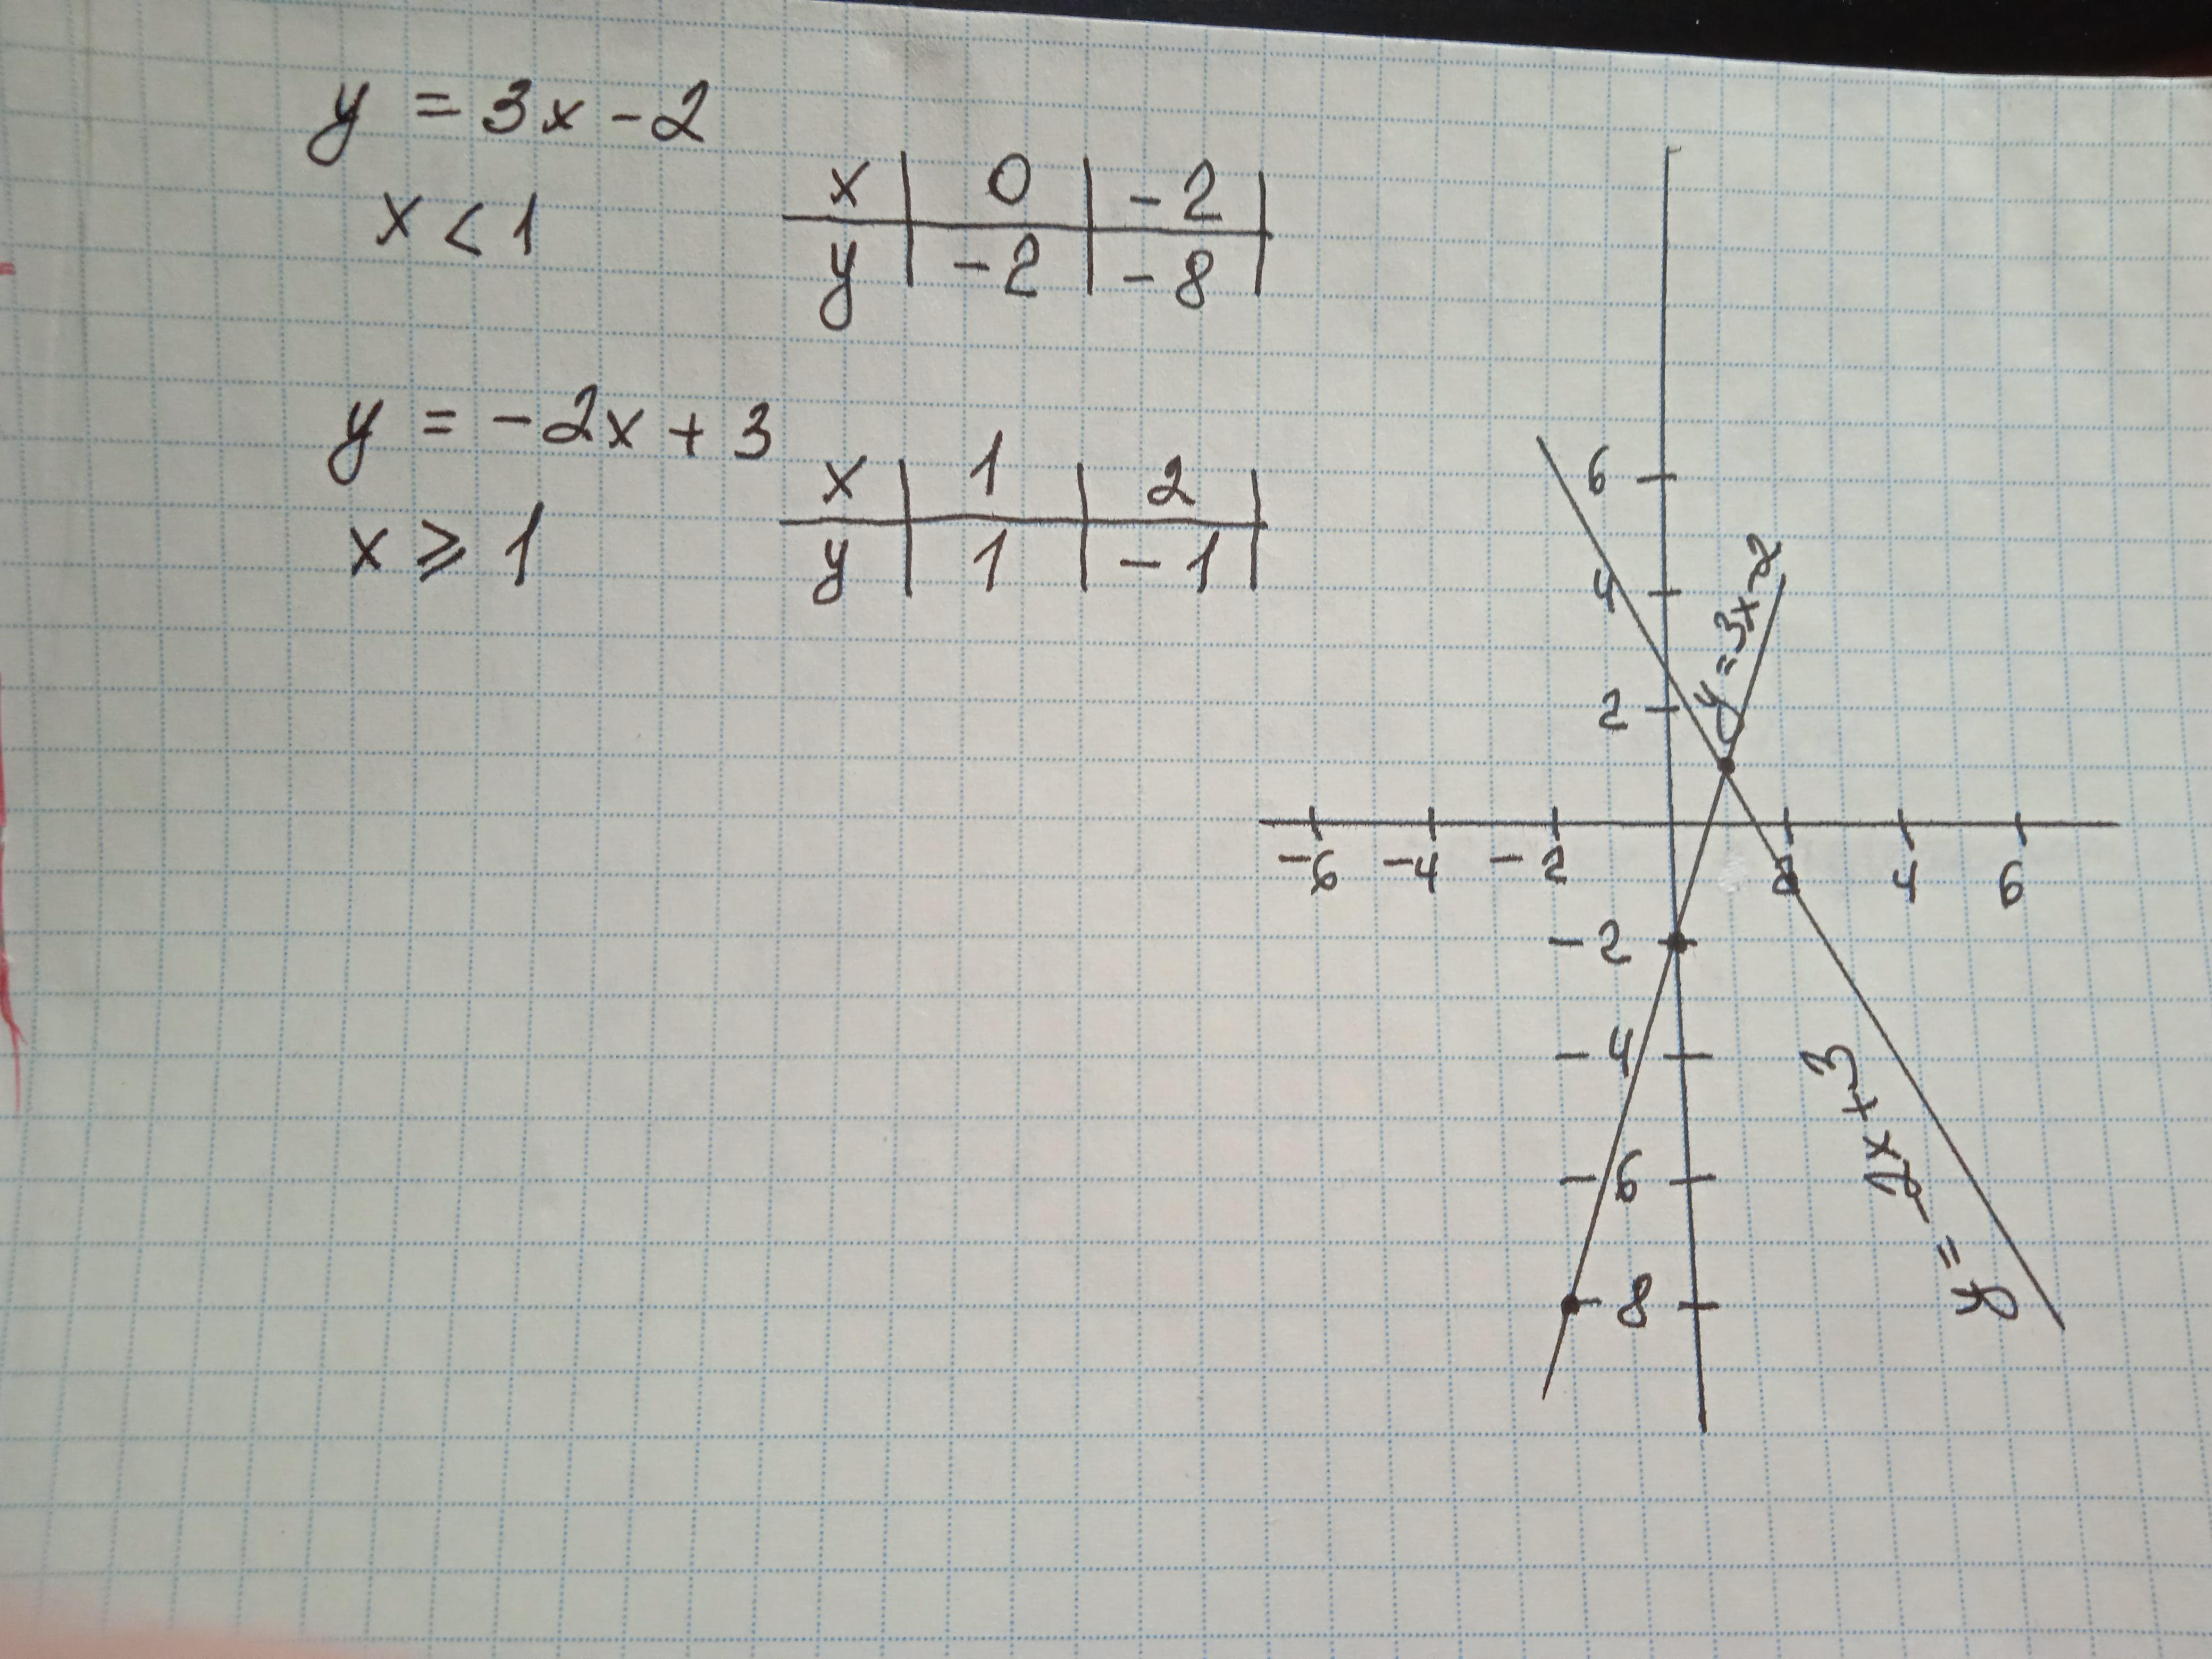 y = 3x - 2
x < 1
x | 0 | -2 |
y | -2 | -8 |
y = -2x + 3
x ⩾ 1
x | 1 | 2 |
y | 1 | -1 |
6
4
2
y = 3x-2
-6 -4 -2 2 4 6
-2
-4
-6
-8
y = -2x+3